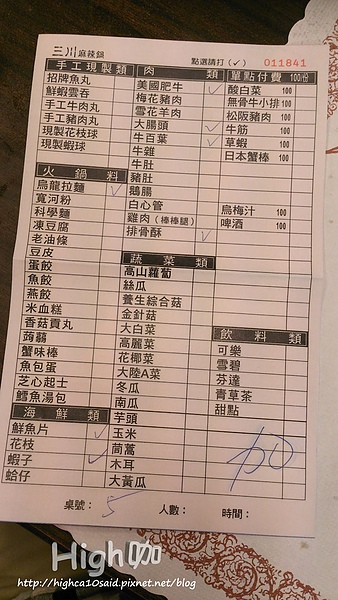 三川麻辣鍋 點選請打(✓) 011841
手工現製類
招牌魚丸
鮮蝦雲吞
手工牛肉丸
手工豬肉丸
現製花枝球
現製蝦球
火鍋料
烏龍拉麵
寬河粉
科學麵
凍豆腐
老油條
豆皮
蛋餃
魚餃
燕餃
米血糕
香菇貢丸
蒟蒻
蟹味棒
魚包蛋
芝心起士
鱈魚湯包
海鮮類
鮮魚片
花枝
蝦子
蛤仔
肉類
美國肥牛
梅花豬肉
雪花羊肉
大腸頭
牛百葉
牛雜
牛肚
豬肚
鵝腸
白心管
雞肉(棒棒腿)
排骨酥
蔬菜類
高山蘿蔔
絲瓜
養生綜合菇
金針菇
大白菜
高麗菜
花椰菜
大陸A菜
冬瓜
南瓜
芋頭
玉米
茼蒿
木耳
大黃瓜
單點付費 100/份
酸白菜 100
無骨牛小排 100
松阪豬肉 100
牛筋 100
草蝦 100
日本蟹棒 100
烏梅汁 100
啤酒 100
飲料類
可樂
雪碧
芬達
青草茶
甜點
加0
桌號：5 人數： 時間：
High咖
http://highca10said.pixnet.net/blog